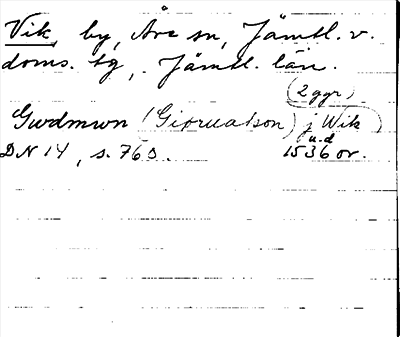 Vik, by, Åre sn, Jämtl. v.
doms. tg, Jämtl. län.
(2 ggr)
Gudmwn (Gioruatson) j Wik
u.d
DN 14, s. 763. 1536 or.